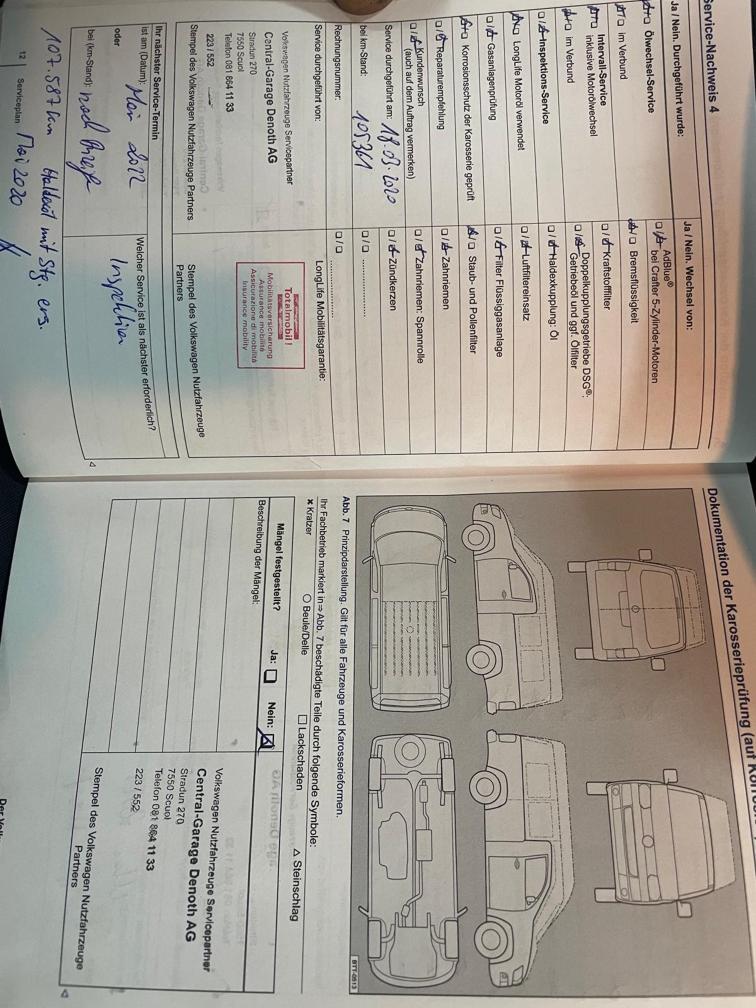 Service-Nachweis 4
Ja / Nein. Durchgeführt wurde:
Ölwechsel-Service
im Verbund
Intervall-Service
inklusive Motorölwechsel
im Verbund
Inspektions-Service
LongLife Motoröl verwendet
Gasanlagenprüfung
Korrosionsschutz der Karosserie geprüft
Reparaturempfehlung
Kundenwunsch
(auch auf dem Auftrag vermerken)
Service durchgeführt am: 2020
bei km-Stand: 105361
Rechnungsnummer:
Service durchgeführt von:
Volkswagen Nutzfahrzeuge Servicepartner
Central-Garage Denoth AG
Stradun 270
7550 Scuol
Telefon 081 864 11 33
223 / 552
Stempel des Volkswagen Nutzfahrzeuge Partners
Ja / Nein. Wechsel von:
AdBlue®
bei Crafter 5-Zylinder-Motoren
Bremsflüssigkeit
Kraftstofffilter
Doppelkupplungsgetriebe DSG®:
Getriebeöl und ggf. Ölfilter
Haldexkupplung: Öl
Luftfiltereinsatz
Filter Flüssiggasanlage
Staub- und Pollenfilter
Zahnriemen
Zahnriemen: Spannrolle
Zündkerzen
LongLife Mobilitätsgarantie:
Totalmobil!
Mobilitätsversicherung
Assurance mobilité
Assicurazione di mobilità
Insurance mobility
Stempel des Volkswagen Nutzfahrzeuge
Partners
Ihr nächster Service-Termin
ist am (Datum): Mai 2022
oder
bei (km-Stand): nach Anzeige
Welcher Service ist als nächster erforderlich?
Inspektion
107.587 km Haldexöl mit Stg. ers.
12 Serviceplan Mai 2020
Dokumentation der Karosserieprüfung (auf
BTT-0513
Abb. 7 Prinzipdarstellung. Gilt für alle Fahrzeuge und Karosserieformen.
Ihr Fachbetrieb markiert in ⇒ Abb. 7 beschädigte Teile durch folgende Symbole:
× Kratzer ○ Beule/Delle □ Lackschaden △ Steinschlag
Mängel festgestellt? Ja: Nein:
Beschreibung der Mängel:
Volkswagen Nutzfahrzeuge Servicepartner
Central-Garage Denoth AG
Stradun 270
7550 Scuol
Telefon 081 864 11 33
223 / 552
Stempel des Volkswagen Nutzfahrzeuge
Partners